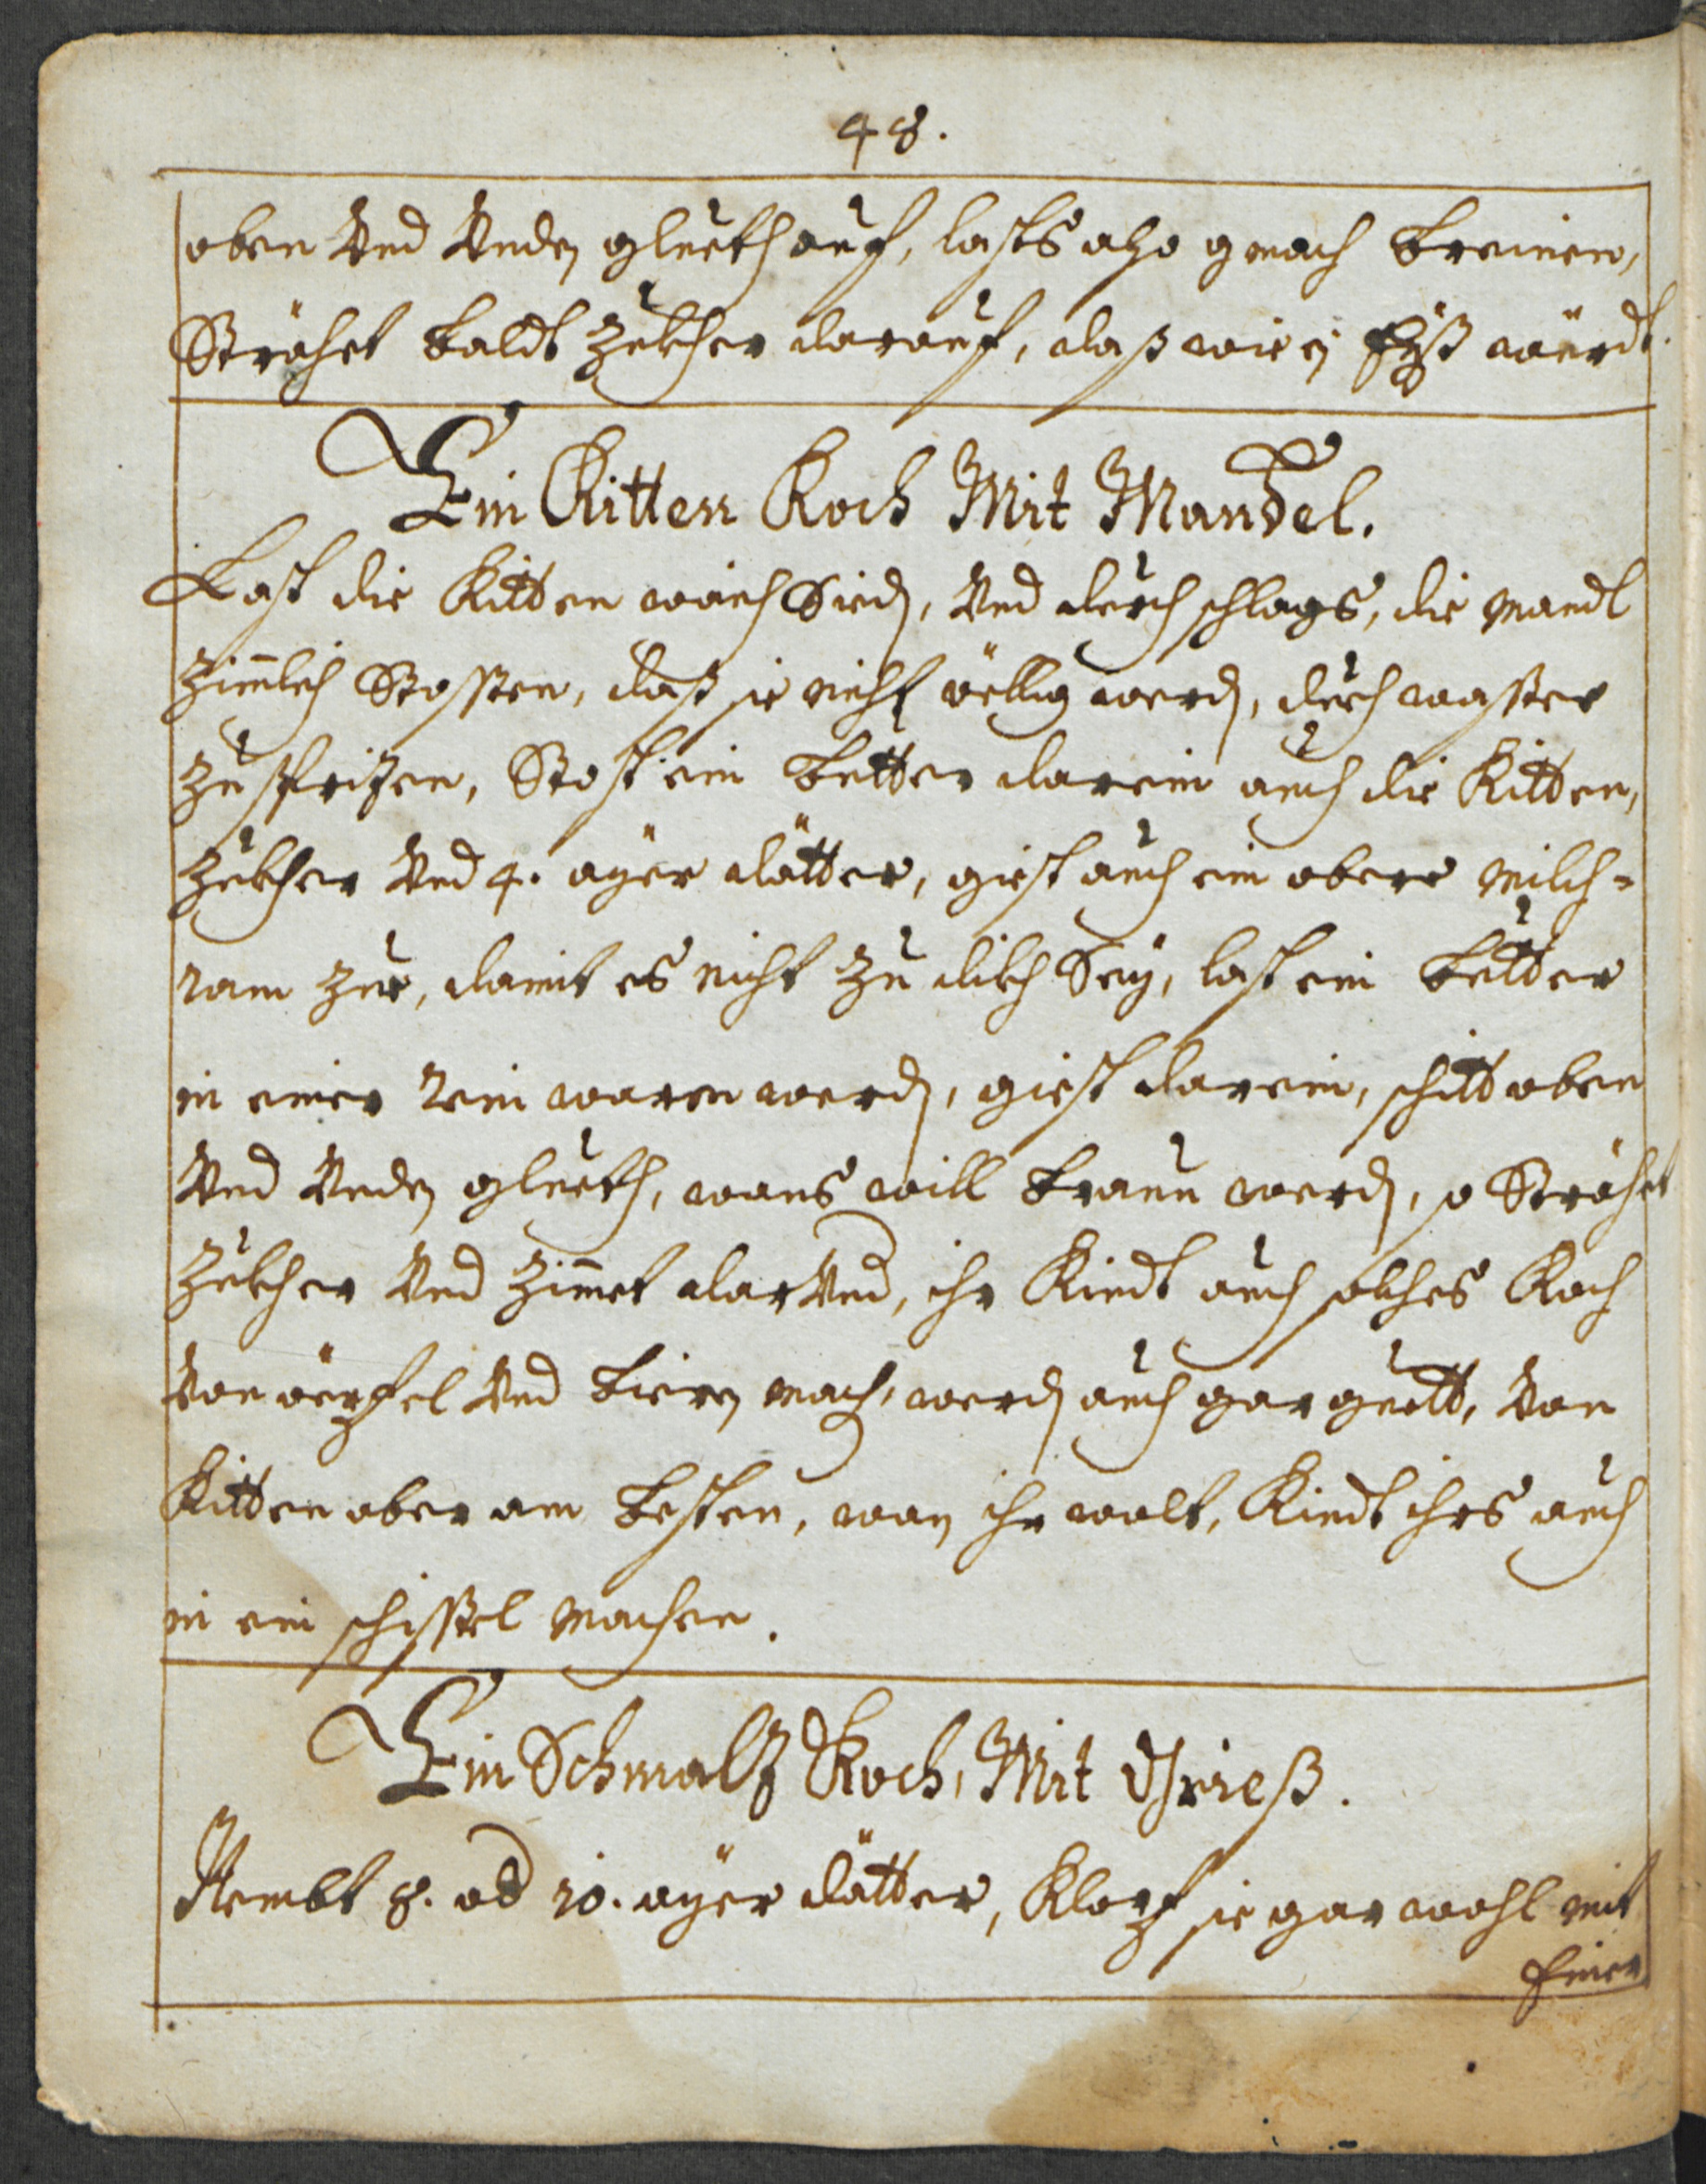 48.
oben Vnd Vnden glueth auf, lasts also gmach breinen,
Strähet baldt Zukher darauf, daß wie ein Eyß würdt.
Ein Kitten Koch Mit Mandel.
Last die Kitten waich Siedn, Vnd durch schlags, die Mandl
Zimlich Stossen, daß sie nicht öllig werdn, durch wasser
Zuspritzen, Stost ein butter darein auch die Kitten,
Zukher Vnd 4. ayer dätter, giest auch ein obere Milch=
ram Zue, damit es nicht Zu dikh Sey, last ein butter
in einer rein warm werdn, giest darein, schitt oben
Vnd Vnden glueth, wans will braun werdn, so Strähet
Zukher Vnd Zimet dar Vmb, ihr Kindt auch solches Koch
Von öpfel Vnd biern mach, werdn auch gar guett, Von
Kitten aber am besten, wan ihr wolt, Kindt ihrs auch
in ein schissel machen.
Ein Schmalz Koch, Mit Grieß.
Nembt 8. od 10. ayer dätter, Klopf sie gar wohl mit
Einer